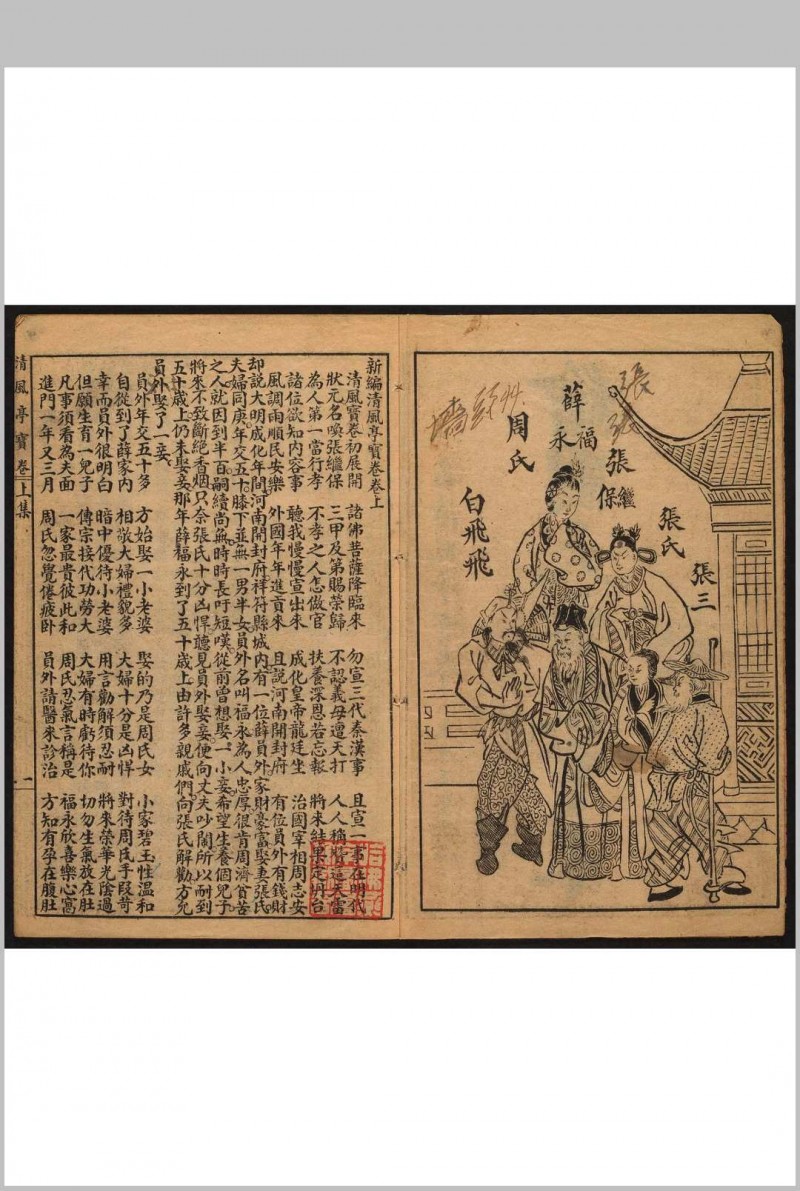 張
張
張繼保
張氏
張三
薛福永
周氏
白飛飛
新編清風亭寶卷卷上
清風寶卷初展開 諸佛菩薩降臨來 勿宣三代秦漢事 且宣一事在明代
狀元名喚張繼保 三甲及第賜榮歸 不認義母遭天打 人人稱贊這天雷
為人第一當行孝 不孝之人怎做官 扶養深恩若忘報 將來結果定坍台
諸位欲知內容事 聽我慢慢宣出來 成化皇帝龍廷坐 治國宰相周志安
風調雨順民安樂 外國年年進貢來 且說河南開封府 有位員外有錢財
却說大明成化年間河南開封府祥符縣城內有一位薛員外家財豪富娶妻張氏
夫婦同庚年交五十膝下並無一男半女員外名叫福永為人忠厚很肯周濟貧苦
之人就因到半百嗣續尚無時時長吁短嘆從前曾想娶一小妾希望生養個兒子
將來不致斷絕香烟只奈張氏十分凶悍聽見員外娶妾便向丈夫吵鬧所以耐到
五十歲上仍未娶妾那年薛福永到了五十歲上由許多親戚們向張氏解勸方允
員外娶了一妾
員外年交五十多 方始娶一小老婆 娶的乃是周氏女 小家碧玉性溫和
自從到了薛家內 相敬大婦禮貌多 大婦十分是凶悍 對待周氏手段苛
幸而員外很明白 暗中優待小老婆 用言勸解須忍耐 將來榮華光陰過
但願生育一兒子 傳宗接代功勞大 大婦有時虧待你 切勿生氣放在肚
凡事須看為夫面 一家最貴彼此和 周氏忍氣言稱是 福永欣喜樂心窩
進門一年又三月 周氏忽覺倦疲臥 員外請醫來診治 方知有孕在腹肚
清風亭寶卷 上集 一